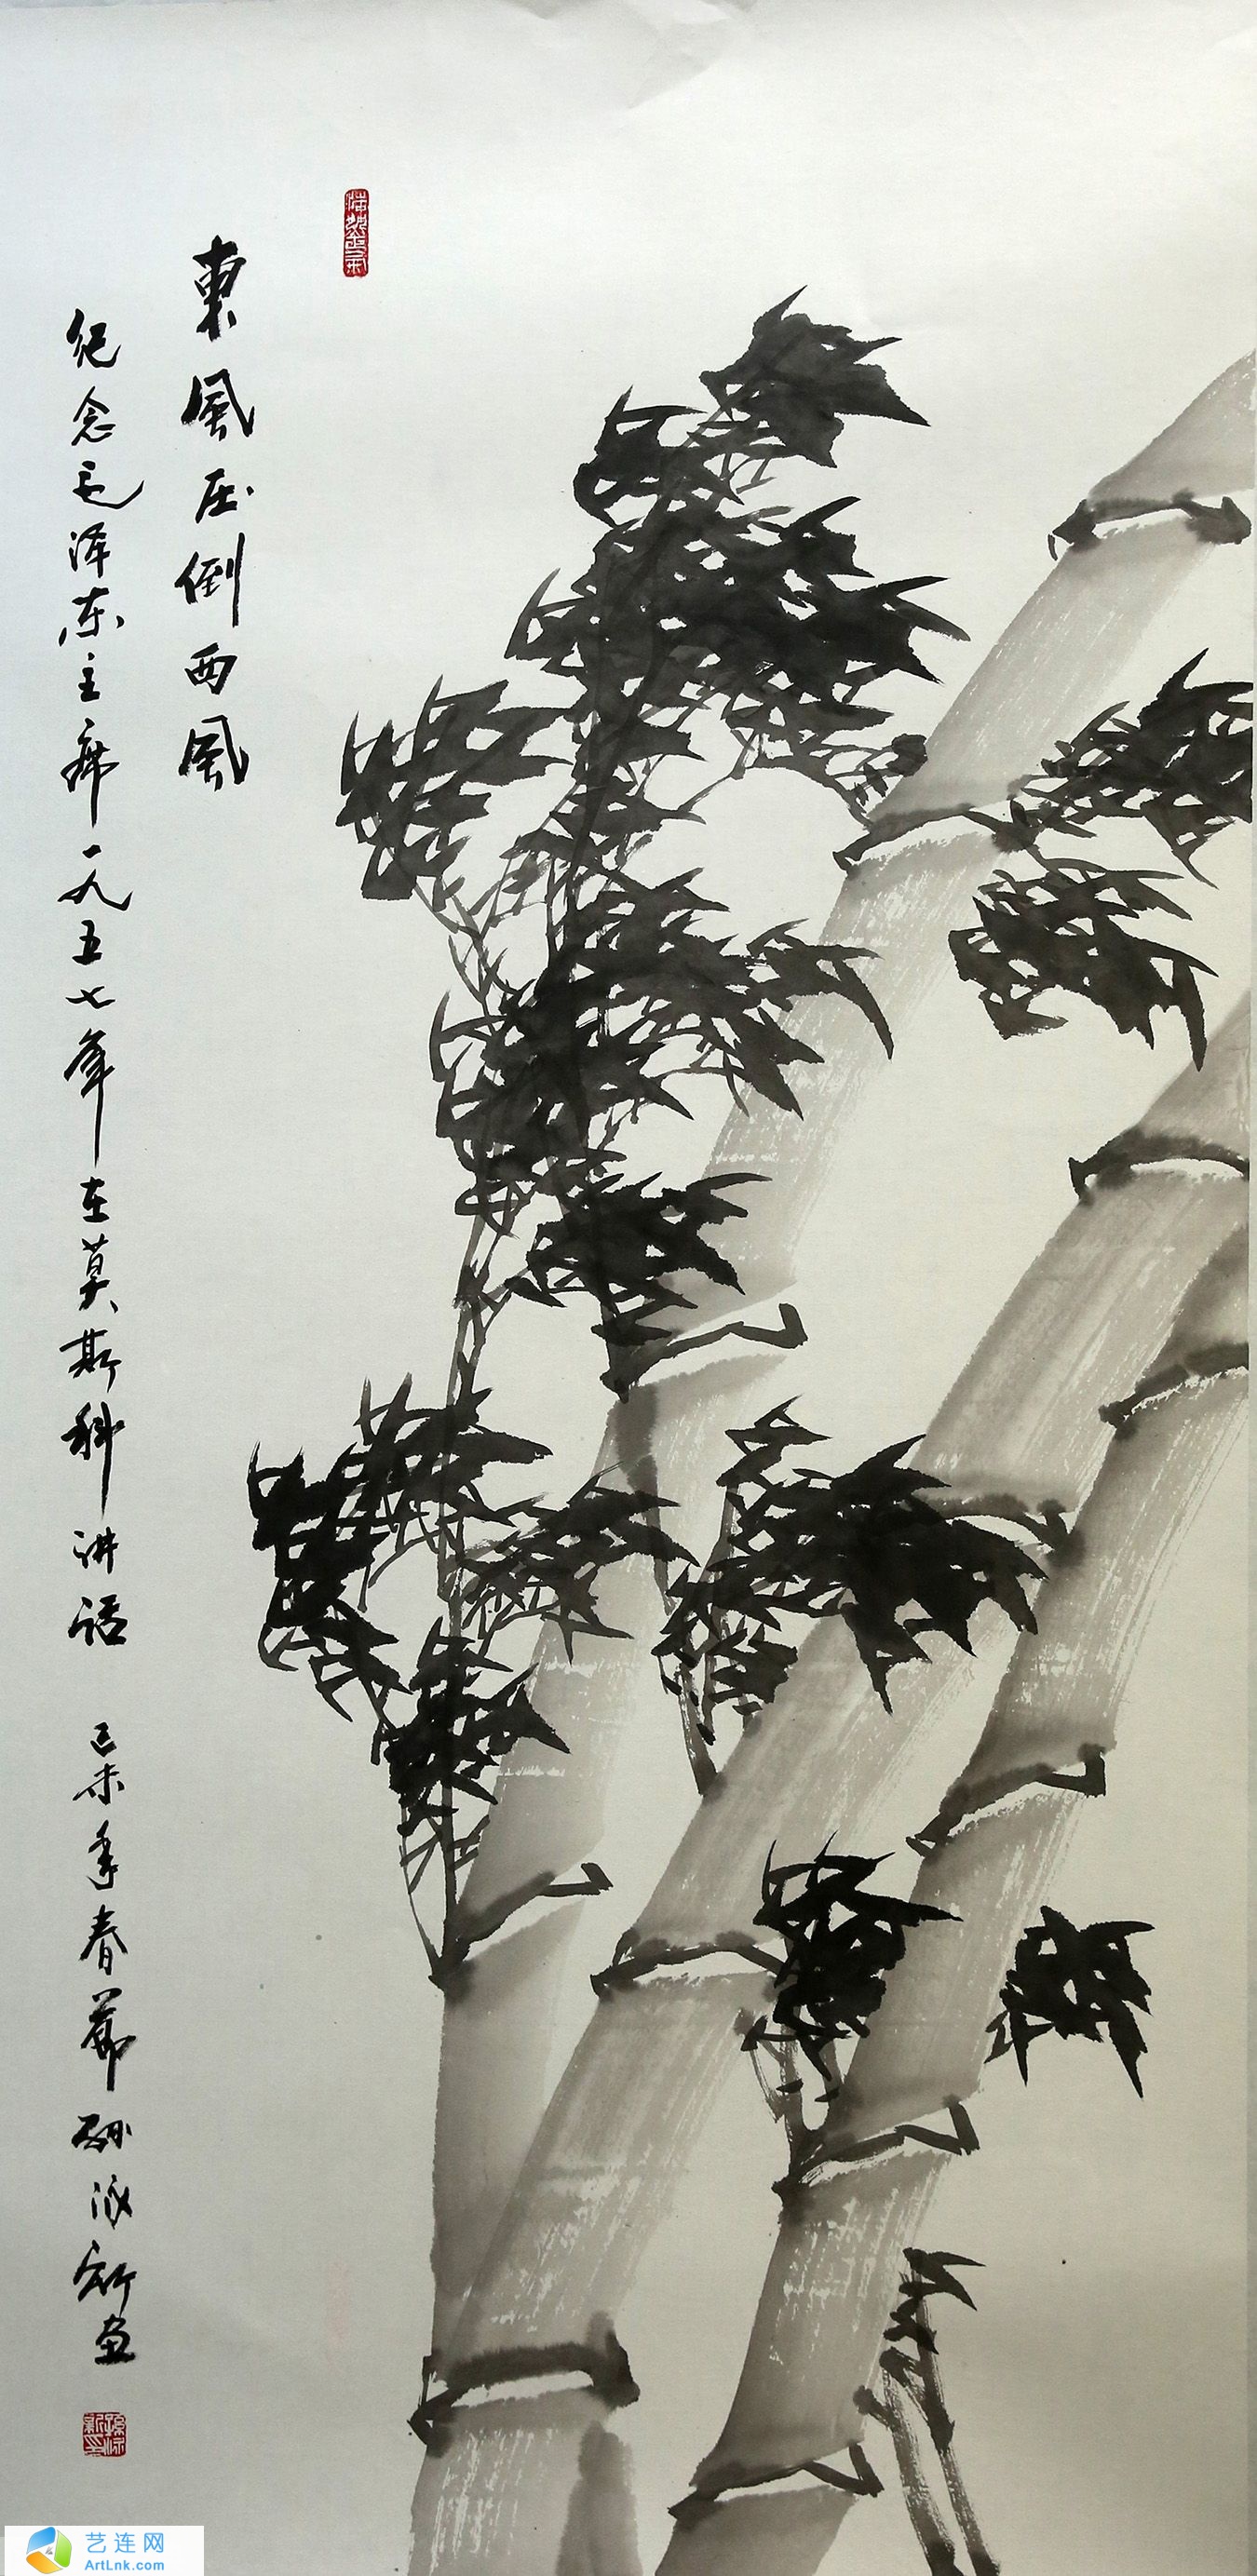 東風压倒西風
纪念毛泽东主席一九五七年在莫斯科讲话 己未年春节 孙泳新画
艺连网
ArtLnk.com